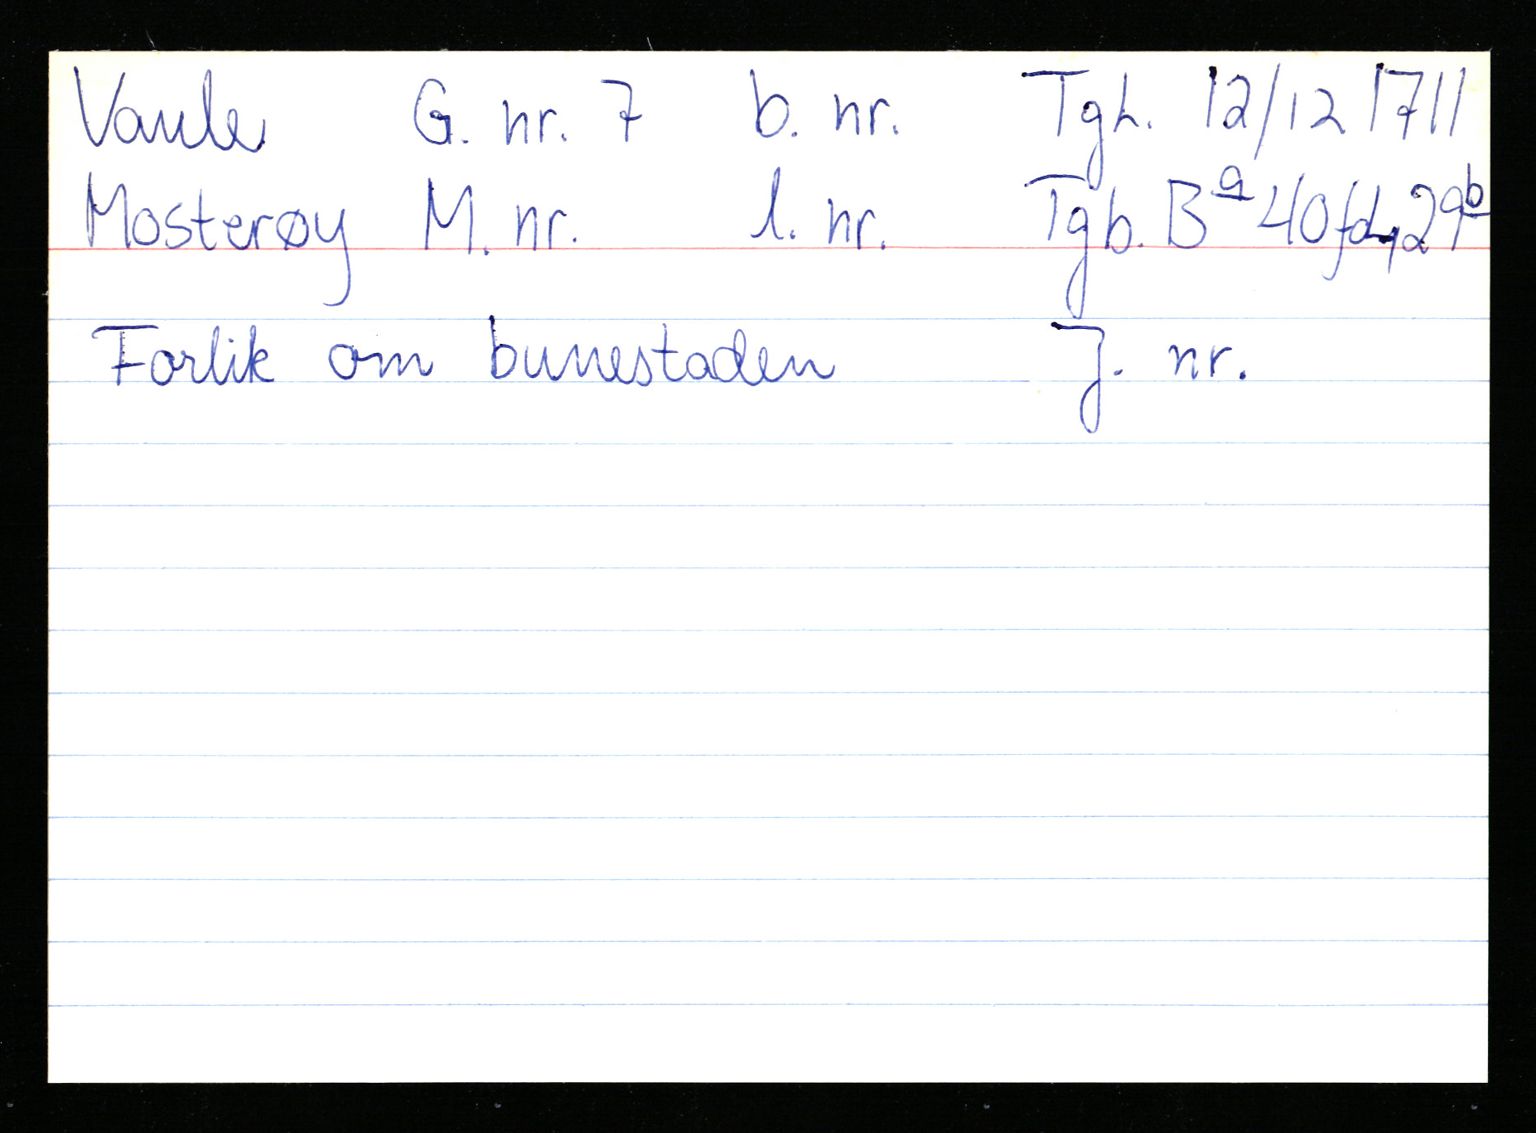 Vaule G. nr. 7 b. nr. Tgh. 12/12 1711
Mosterøy M. nr. l. nr. Tgb. B a 40 fol, 29b
Forlik om bunestaden J. nr.